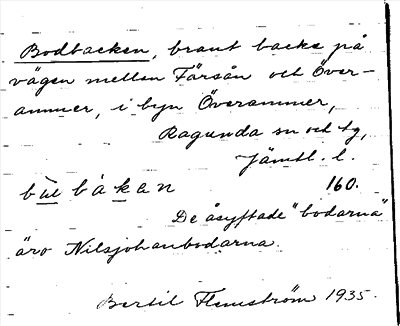 Bodbacken, brant backe på
vägen mellan Färsån och Över-
ammer, i byn Överammer,
Ragunda sn och tg,
Jämtl. l.
bu̇t båkan 160.
De åsyftade "bodarna"
äro Nilsjohanbodarna.
Bertil Flemström 1935.